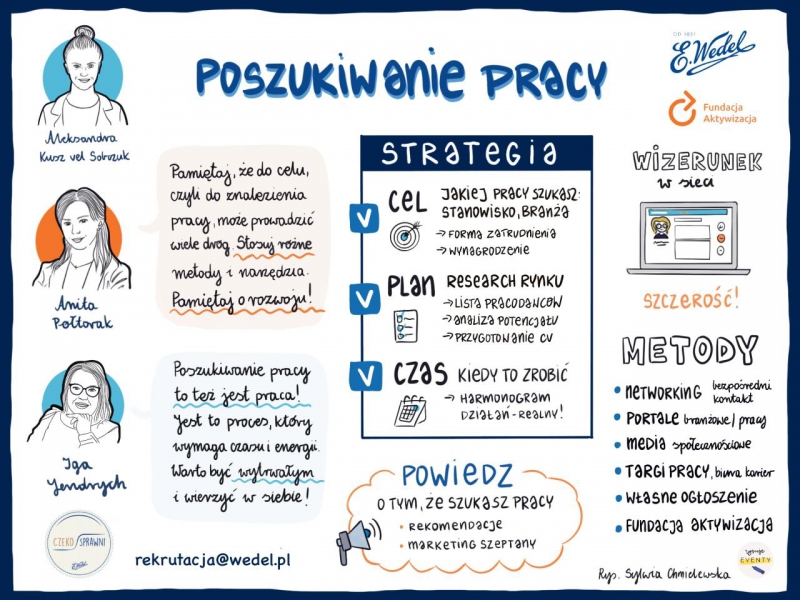 POSZUKIWANIE PRACY
OD 1851
E.Wedel
Fundacja
Aktywizacja
Aleksandra
Kusz vel Sobczuk
Anita
Półtorak
Iga
Jendrych
Pamiętaj, że do celu,
czyli do znalezienia
pracy, może prowadzić
wiele dróg. Stosuj różne
metody i narzędzia.
Pamiętaj o rozwoju!
Poszukiwanie pracy
to też jest praca!
Jest to proces, który
wymaga czasu i energii.
Warto być wytrwałym
i wierzyć w siebie!
STRATEGIA
CEL JAKIEJ PRACY SZUKASZ:
STANOWISKO, BRANŻA
→ FORMA ZATRUDNIENIA
→ WYNAGRODZENIE
PLAN RESEARCH RYNKU
→ LISTA PRACODAWCÓW
→ ANALIZA POTENCJAŁU
→ PRZYGOTOWANIE CV
CZAS KIEDY TO ZROBIĆ
→ HARMONOGRAM
DZIAŁAŃ - REALNY!
POWIEDZ
O TYM, ŻE SZUKASZ PRACY
• REKOMENDACJE
• MARKETING SZEPTANY
WIZERUNEK
w sieci
SZCZEROŚĆ!
METODY
• NETWORKING bezpośredni
kontakt
• PORTALE branżowe / pracy
• MEDIA społecznościowe
• TARGI PRACY, biura karier
• WŁASNE OGŁOSZENIE
• FUNDACJA AKTYWIZACJA
CZEKO SPRAWNI
E.Wedel
rekrutacja@wedel.pl
Rys. Sylwia Chmielewska
rysuję
EVENTY